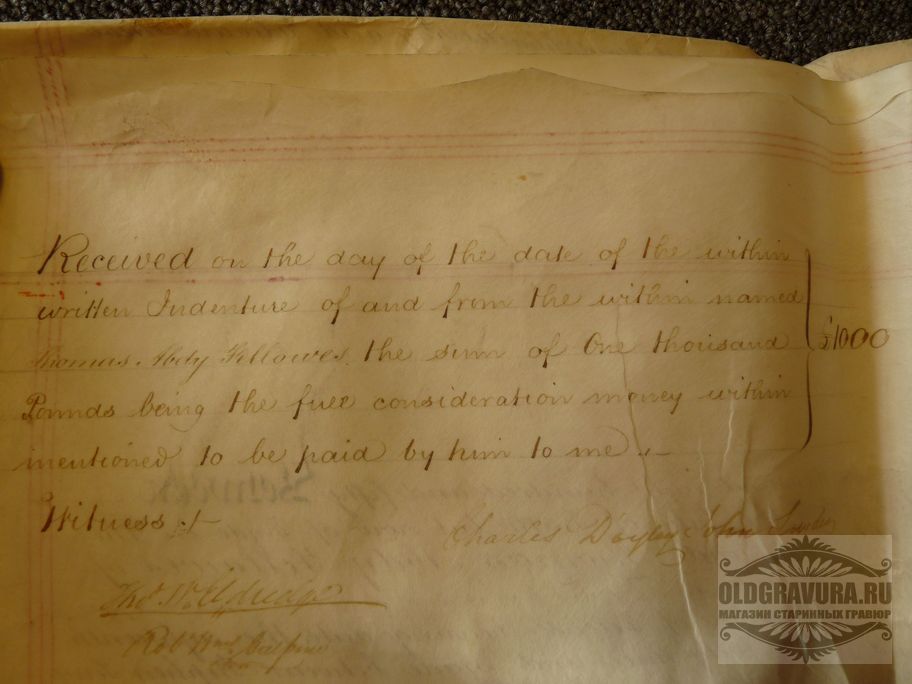 Received on the day of the date of the within
written Indenture of and from the within named
Thomas Abdy Fellowes the sum of One thousand
Pounds being the full consideration money within
mentioned to be paid by him to me
£1000
Witness
Charles D'oyly John
Thos Wm
Robt Wm
OLDGRAVURA.RU
МАГАЗИН СТАРИННЫХ ГРАВЮР